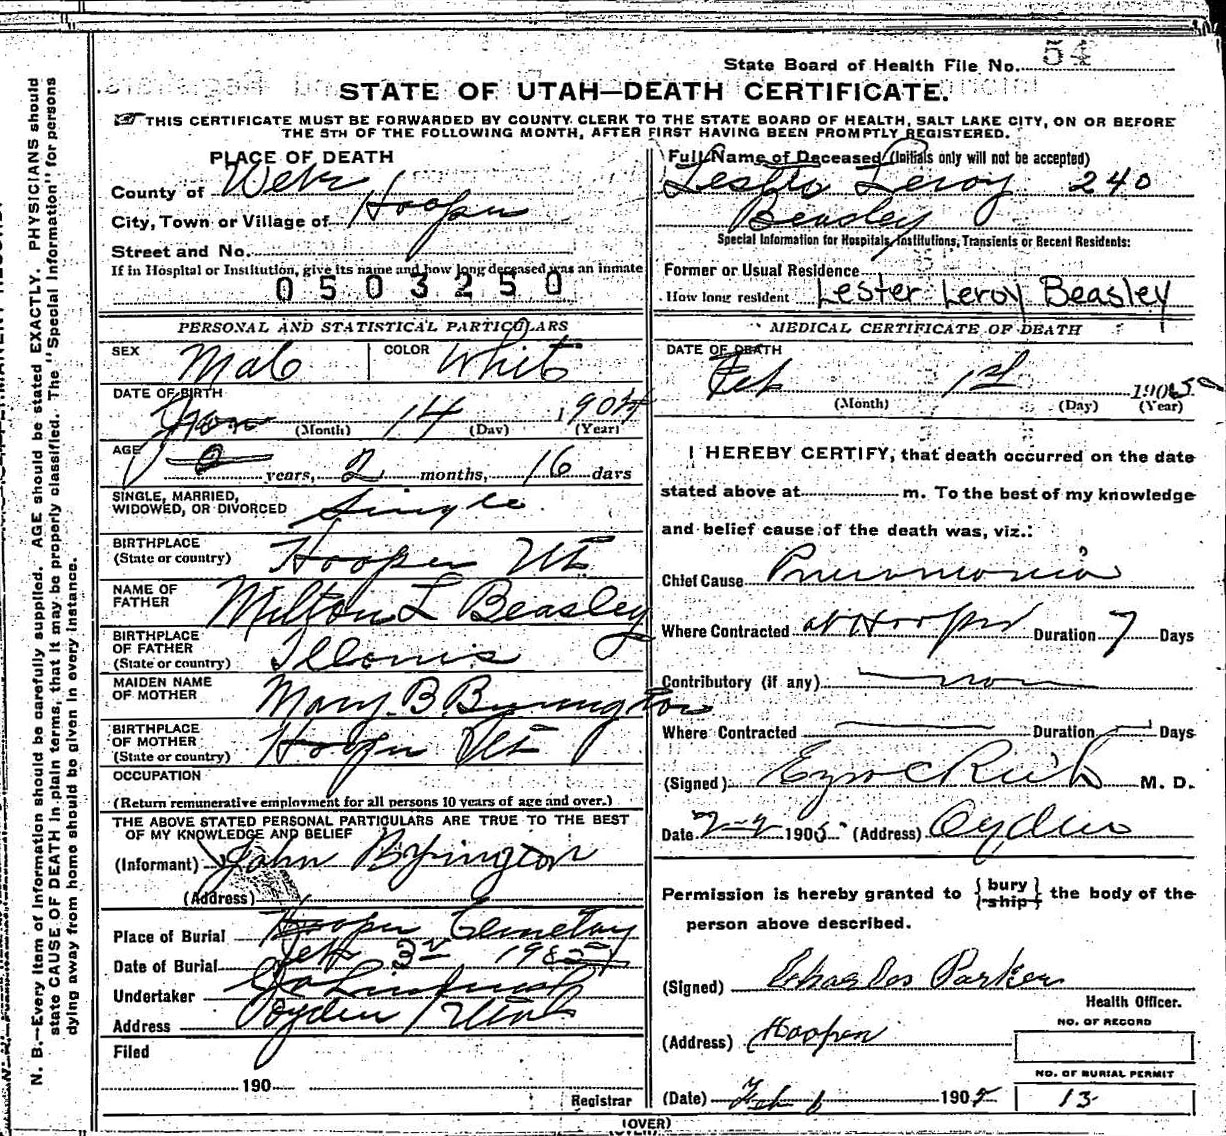 State Board of Health File No. 54
STATE OF UTAH—DEATH CERTIFICATE.
THIS CERTIFICATE MUST BE FORWARDED BY COUNTY CLERK TO THE STATE BOARD OF HEALTH, SALT LAKE CITY, ON OR BEFORE
THE 5TH OF THE FOLLOWING MONTH, AFTER FIRST HAVING BEEN PROMPTLY REGISTERED.
PLACE OF DEATH
County of Weber
City, Town or Village of Hooper
Street and No.
If in Hospital or Institution, give its name and how long deceased was an inmate
0503250
PERSONAL AND STATISTICAL PARTICULARS
SEX Male COLOR White
DATE OF BIRTH
14 1904
(Month) (Day) (Year)
AGE 0 years, 2 months, 16 days
SINGLE, MARRIED,
WIDOWED, OR DIVORCED Single
BIRTHPLACE
(State or country) Hooper Ut
NAME OF
FATHER Milton L Beasley
BIRTHPLACE
OF FATHER
(State or country) Illonis
MAIDEN NAME
OF MOTHER Mary B.
BIRTHPLACE
OF MOTHER
(State or country) Hooper Ut
OCCUPATION
(Return remunerative employment for all persons 10 years of age and over.)
THE ABOVE STATED PERSONAL PARTICULARS ARE TRUE TO THE BEST
OF MY KNOWLEDGE AND BELIEF
(Informant) John Byington
(Address)
Place of Burial Hooper Cemetary
Date of Burial Feb 3rd
Undertaker
Address Ogden Utah
Filed
190
Registrar
Full Name of Deceased (Initials only will not be accepted)
Leroy 240
Beasley
Special Information for Hospitals, Institutions, Transients or Recent Residents:
Former or Usual Residence
How long resident Lester Leroy Beasley
MEDICAL CERTIFICATE OF DEATH
DATE OF DEATH
Feb 1st 1905
(Month) (Day) (Year)
I HEREBY CERTIFY, that death occurred on the date
stated above at m. To the best of my knowledge
and belief cause of the death was, viz.:
Chief Cause Pneumonia
Where Contracted at Hooper Duration 7 Days
Contributory (if any) non
Where Contracted Duration Days
(Signed) Ezra C Rich M. D.
Date 2-2 1905 (Address) Ogden
Permission is hereby granted to {bury ship} the body of the
person above described.
(Signed) Charles Parker
Health Officer.
(Address) Hooper
NO. OF RECORD
NO. OF BURIAL PERMIT
(Date) Feb 1905 13
(OVER)
N. B.—Every item of information should be carefully supplied. AGE should be stated EXACTLY. PHYSICIANS should
state CAUSE OF DEATH in plain terms, that it may be properly classified. The "Special Information" for persons
dying away from home should be given in every instance.